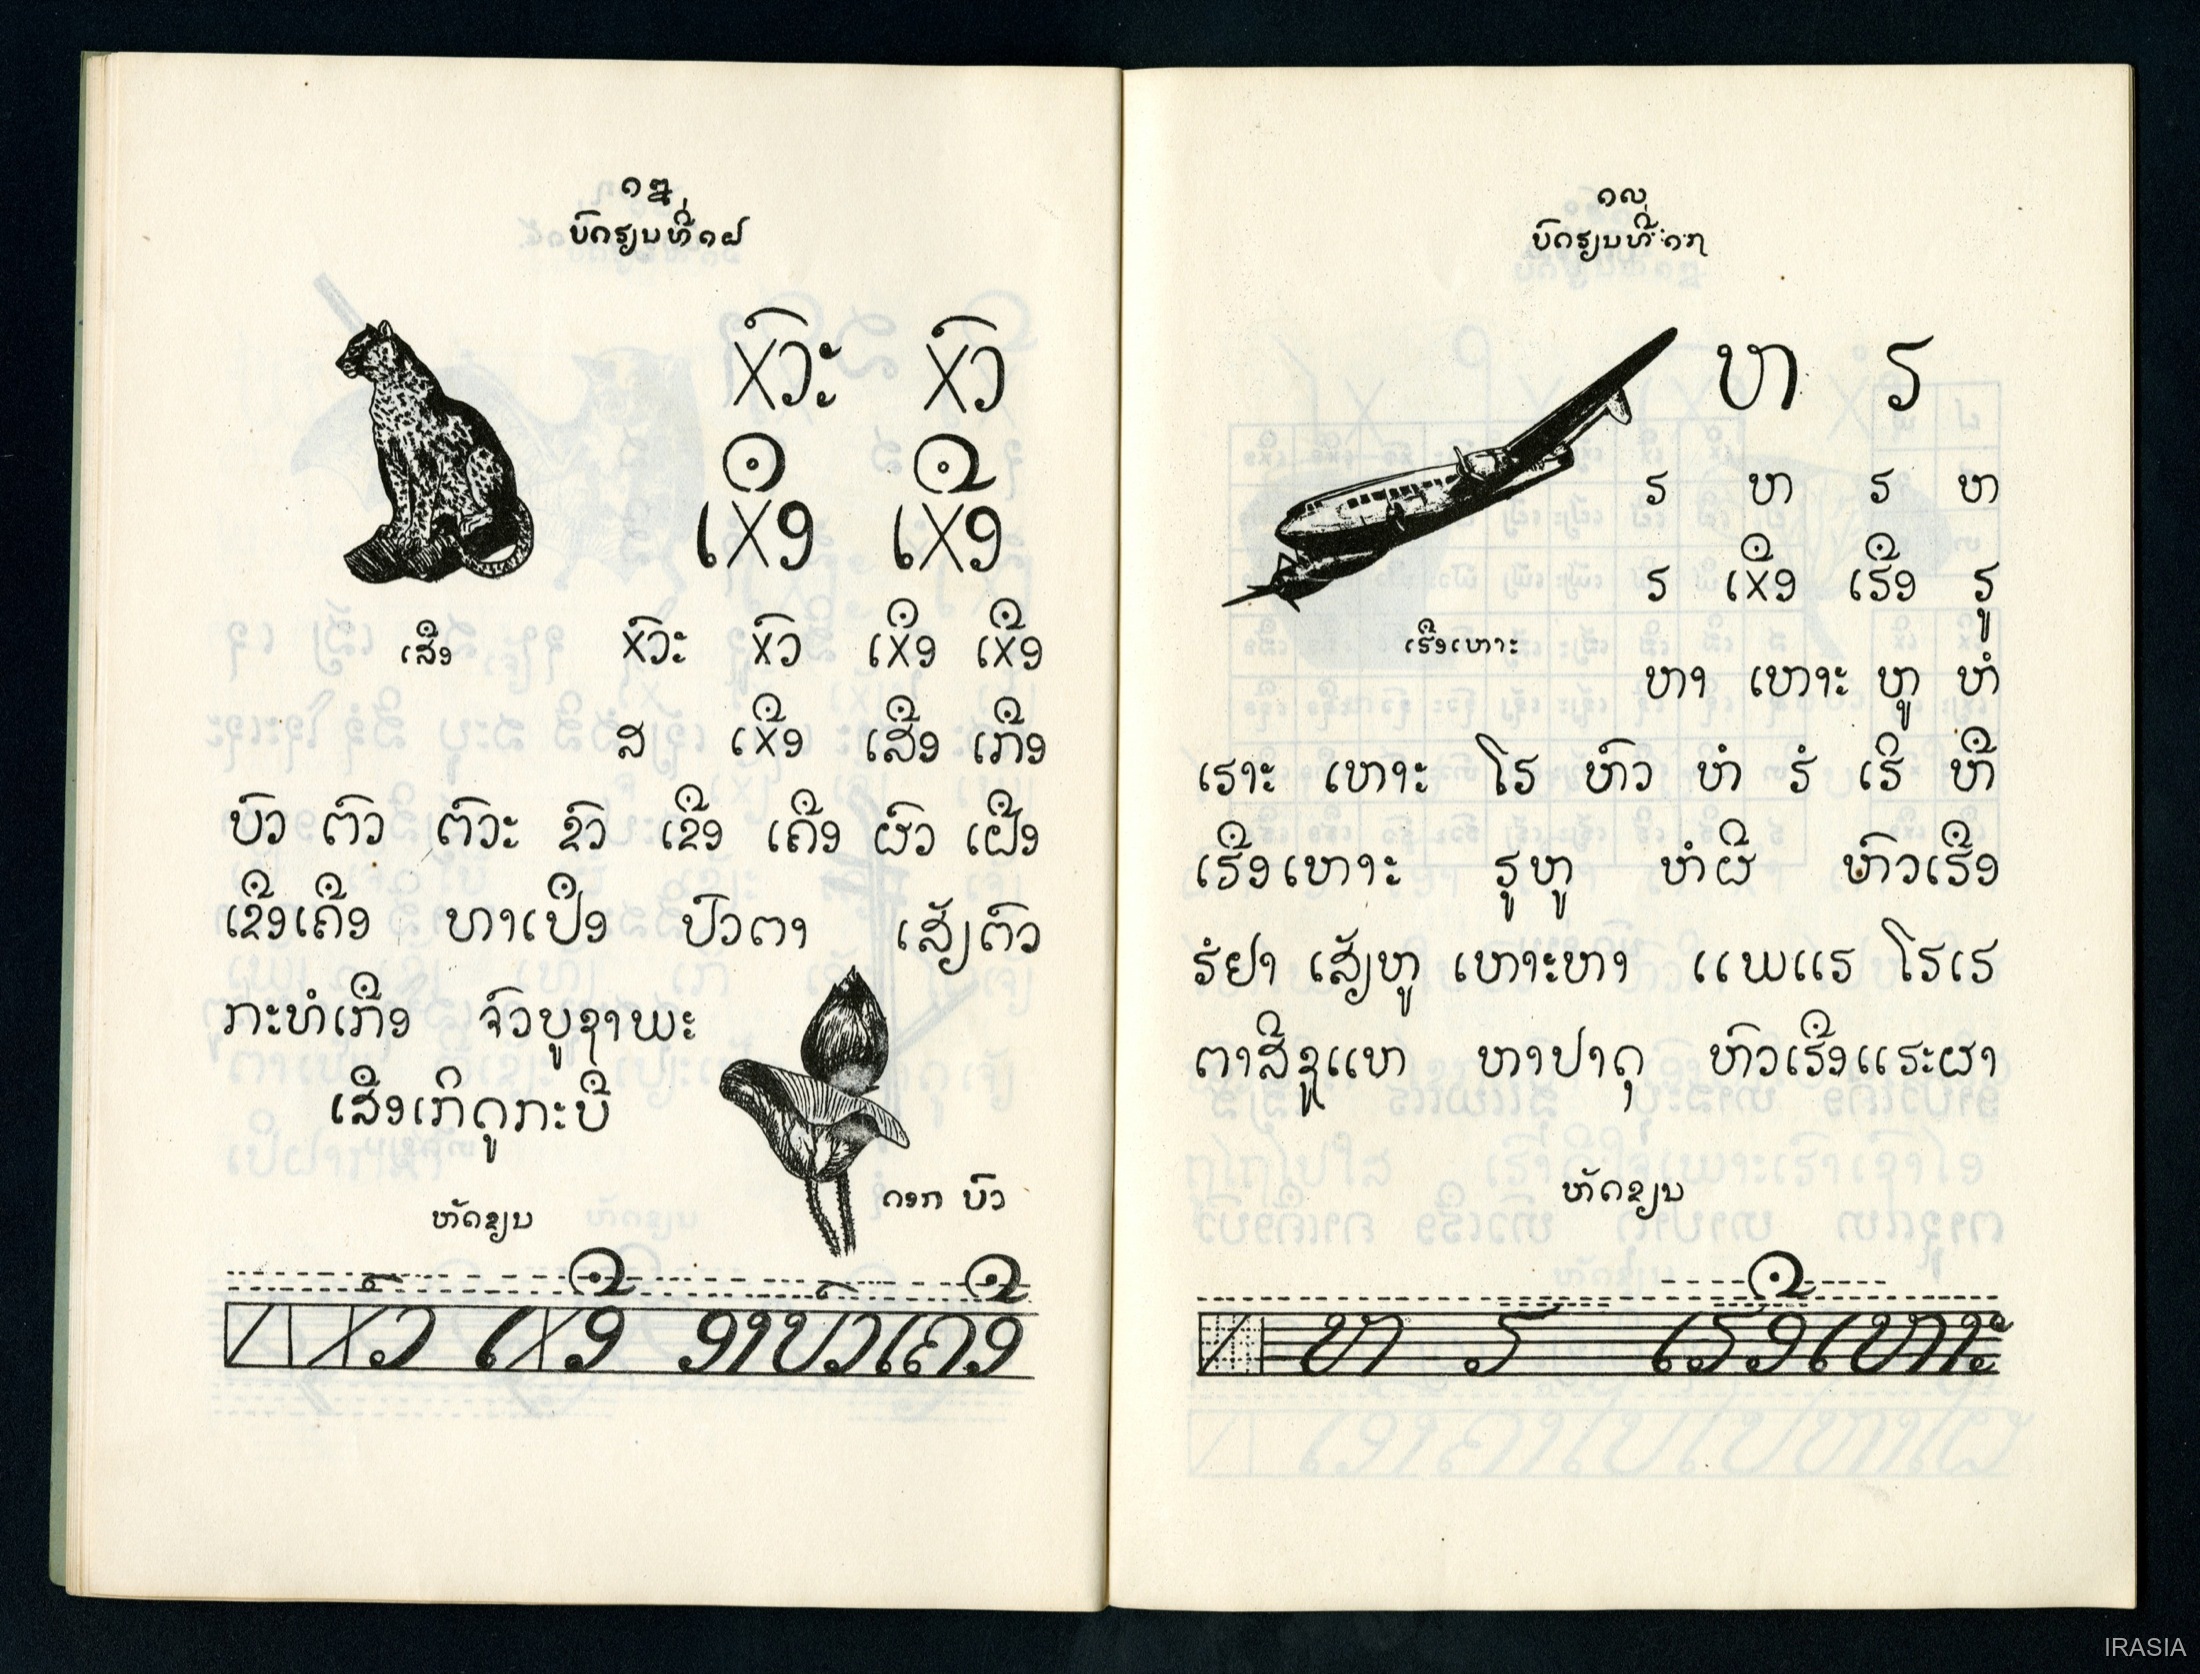 ໑໘
ບົດຣຽນທີ່໑໖
xົວະ xົວ
ເxຶອ ເxືອ
ເສືອ
xົວະ xົວ ເxຶອ ເxືອ
ສ ເxືອ ເສືອ ເກືອ
ບົວ ຕົວ ຕົວະ ຂົວ ເຂືອ ເຄືອ ຜົວ ເຝືອ
ເຂືອເຄືອ ທາເປືອ ປົວຕາ ເສັຽຕົວ
ກະທໍເກືອ ຈົວບູຊາພະ
ເສືອເກິດູກະບື
ດອກ ບົວ
ຫັດຂຽນ
xົວ ເxືອ ອາບົວເຄືອ
໑໙
ບົດຣຽນທີ່໑໗
ຫ ຣ
ຣ ຫ ຣ ຫ
ຣ ເxືອ ເຣືອ ຣູ
ເຣືອເຫາະ
ຫາ ເຫາະ ຫູ ຫໍ
ເຣາະ ເຫາະ ໂຣ ຫົວ ຫໍ ຣໍ ເຣິ ຫື
ເຣືອເຫາະ ຣູຫູ ຫໍຜີ ຫົວເຣືອ
ຣໍຢາ ເສັຽຫູ ເຫາະຫາ ແພແຣ ໂຣເຣ
ຕາສີຊູແຫ ຫາປາດຸ ຫົວເຣືອແຣະຜາ
ຫັດຂຽນ
ຫ ຣ ເຣືອເຫາະ
IRASIA